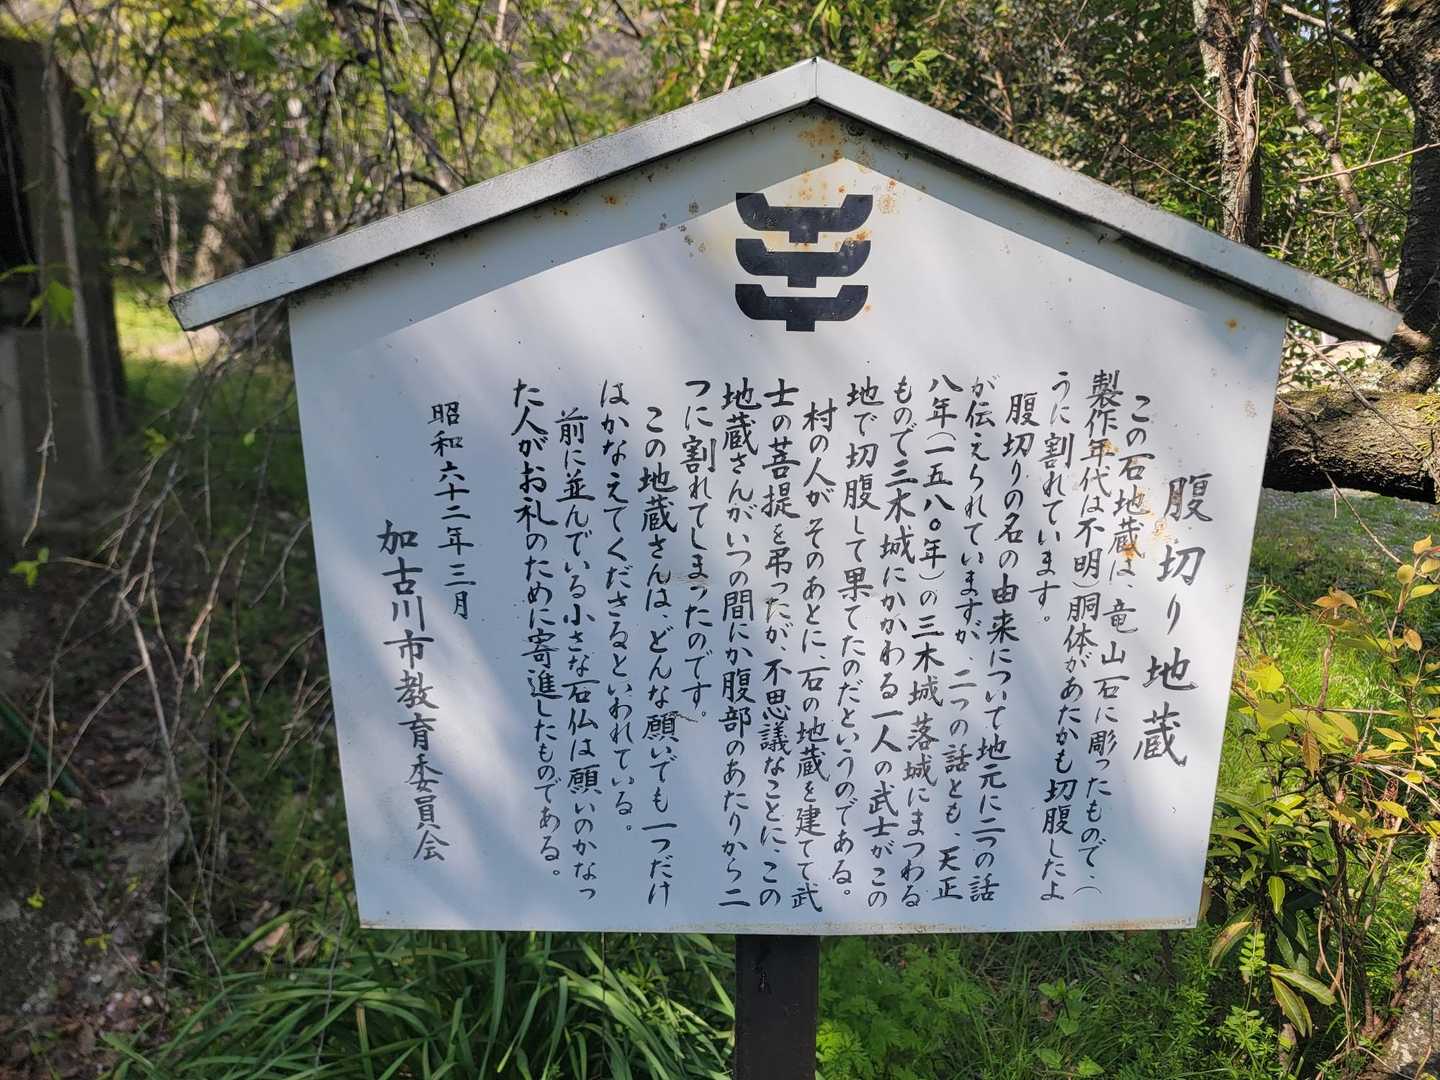 腹切り地蔵
この石地蔵は、竜山石に彫ったもので、(
製作年代は不明)胴体があたかも切腹したよ
うに割れています。
腹切りの名の由来について地元に二つの話
が伝えられていますが、二つの話とも、天正
八年(一五八〇年)の三木城落城にまつわる
もので三木城にかかわる一人の武士がこの
地で切腹して果てたのだというのである。
村の人がそのあとに、石の地蔵を建てて武
士の菩提を弔ったが、不思議なことに、この
地蔵さんがいつの間にか腹部のあたりから二
つに割れてしまったのです。
この地蔵さんは、どんな願いでも一つだけ
はかなえてくださるといわれている。
前に並んでいる小さな石仏は願いのかなっ
た人がお礼のために寄進したものである。
昭和六十二年三月
加古川市教育委員会